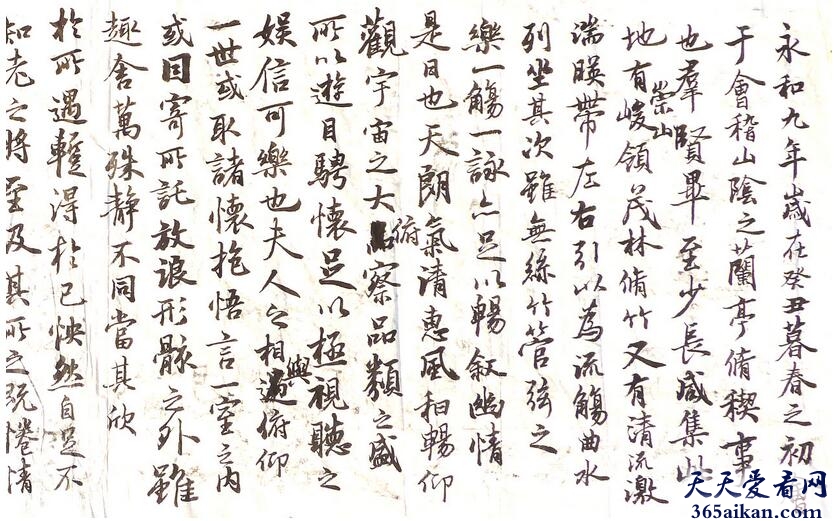 永和九年歲在癸丑暮春之初
于會稽山陰之蘭亭脩稧事
也羣賢畢至少長咸集此
地有崇山峻領茂林脩竹又有清流激
湍暎帶左右引以為流觴曲水
列坐其次雖無絲竹管弦之
樂一觴一詠亦足以暢叙幽情
是日也天朗氣清惠風和暢仰
觀宇宙之大俯察品類之盛
所以遊目騁懷足以極視聽之
娛信可樂也夫人之相與俯仰
一世或取諸懷抱悟言一室之內
或因寄所託放浪形骸之外雖
趣舍萬殊静不同當其欣
於所遇蹔得於己怏然自足不
知老之將至及其所之既惓情
天天爱看网
365aikan.com